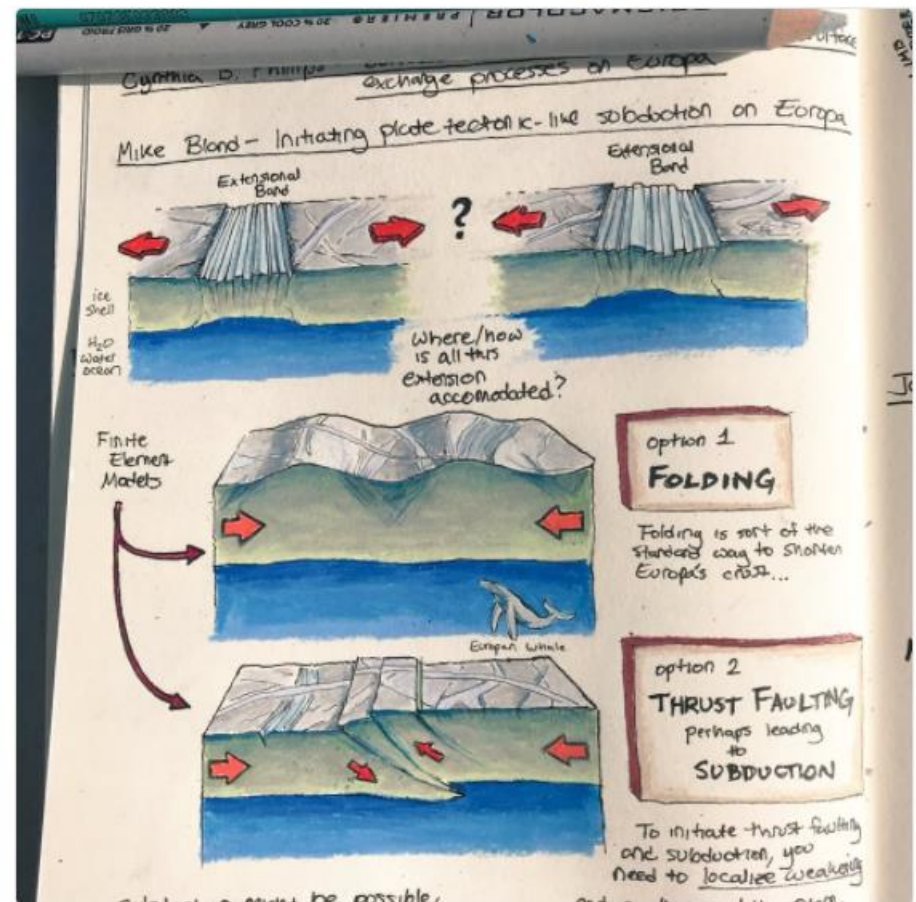 PREMIER
20% COOL GREY
Cynthia B. Phillips
exchange processes on Europa
Mike Bland - Initiating plate tectonic-like subduction on Europa
Extensional
Band
Extensional
Band
?
ice
shell
H₂O
water
ocean
Where/how
is all this
extension
accomodated?
Finite
Element
Models
option 1
FOLDING
Folding is sort of the
standard way to shorten
Europa's crust...
Europan Whale
option 2
THRUST FAULTING
perhaps leading
to
SUBDUCTION
To initiate thrust faulting
and subduction, you
need to localize weakening
might be possible,